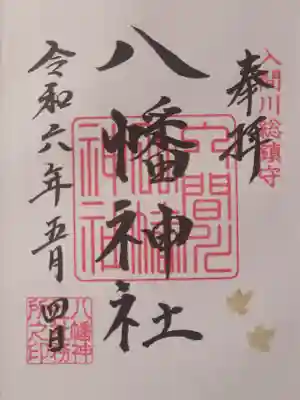 入間川総鎮守
奉拝
八幡神社
令和六年五月四日
八幡神
社務
所之印